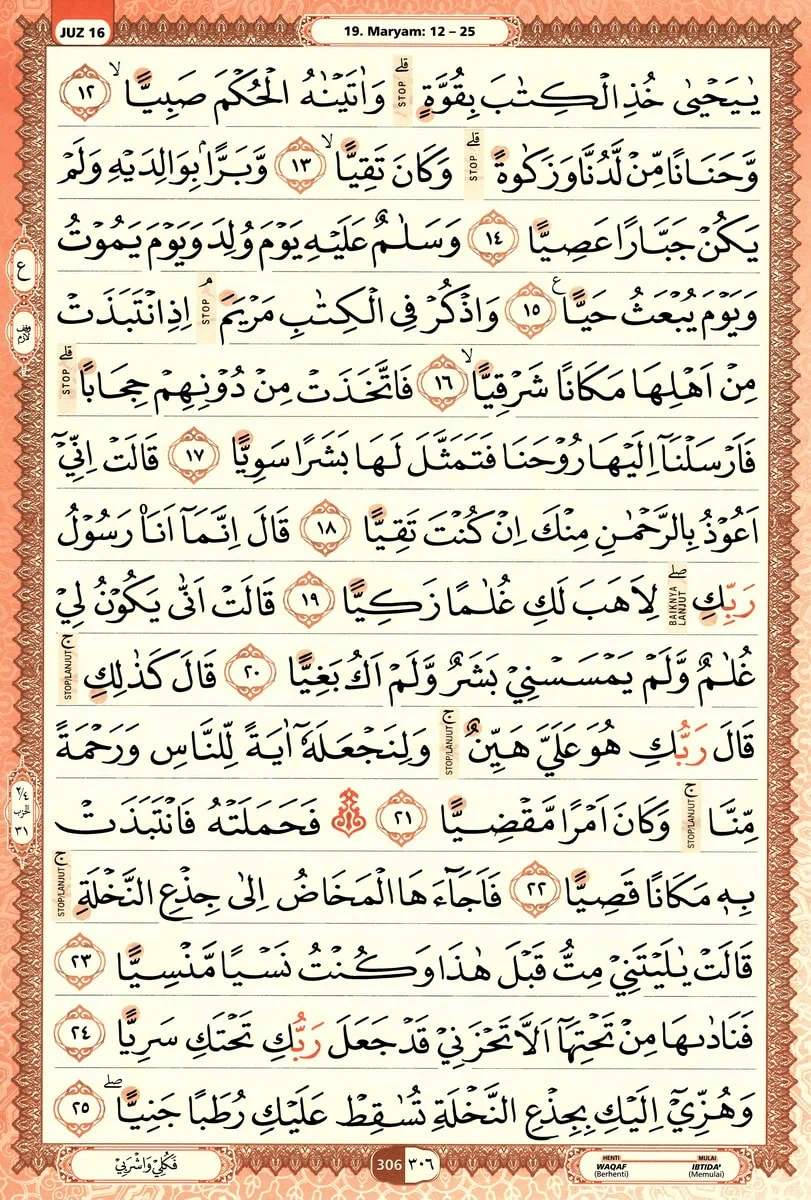 JUZ 16
19. Maryam: 12 – 25
يٰيَحْيٰى خُذِ الْكِتٰبَ بِقُوَّةٍ ۗ STOP وَاٰتَيْنٰهُ الْحُكْمَ صَبِيًّاۙ ١٢
وَّحَنَانًا مِّنْ لَّدُنَّا وَزَكٰوةً ۗ STOP وَكَانَ تَقِيًّاۙ ١٣ وَّبَرًّاۢ بِوَالِدَيْهِ وَلَمْ
يَكُنْ جَبَّارًا عَصِيًّا ١٤ وَسَلٰمٌ عَلَيْهِ يَوْمَ وُلِدَ وَيَوْمَ يَمُوْتُ
وَيَوْمَ يُبْعَثُ حَيًّا ࣖ ١٥ وَاذْكُرْ فِى الْكِتٰبِ مَرْيَمَۘ STOP اِذِ انْتَبَذَتْ
مِنْ اَهْلِهَا مَكَانًا شَرْقِيًّاۙ ١٦ فَاتَّخَذَتْ مِنْ دُوْنِهِمْ حِجَابًاۗ STOP
فَاَرْسَلْنَآ اِلَيْهَا رُوْحَنَا فَتَمَثَّلَ لَهَا بَشَرًا سَوِيًّا ١٧ قَالَتْ اِنِّيْٓ
اَعُوْذُ بِالرَّحْمٰنِ مِنْكَ اِنْ كُنْتَ تَقِيًّا ١٨ قَالَ اِنَّمَآ اَنَا۠ رَسُوْلُ
رَبِّكِۖ BAIKNYA LANJUT لِاَهَبَ لَكِ غُلٰمًا زَكِيًّا ١٩ قَالَتْ اَنّٰى يَكُوْنُ لِيْ
غُلٰمٌ وَّلَمْ يَمْسَسْنِيْ بَشَرٌ وَّلَمْ اَكُ بَغِيًّا ٢٠ قَالَ كَذٰلِكِۚ STOP/LANJUT
قَالَ رَبُّكِ هُوَ عَلَيَّ هَيِّنٌۚ STOP/LANJUT وَلِنَجْعَلَهٗٓ اٰيَةً لِّلنَّاسِ وَرَحْمَةً
مِّنَّاۚ STOP/LANJUT وَكَانَ اَمْرًا مَّقْضِيًّا ٢١ ۞ فَحَمَلَتْهُ فَانْتَبَذَتْ
بِهٖ مَكَانًا قَصِيًّا ٢٢ فَاَجَاۤءَهَا الْمَخَاضُ اِلٰى جِذْعِ النَّخْلَةِۚ STOP/LANJUT
قَالَتْ يٰلَيْتَنِيْ مِتُّ قَبْلَ هٰذَا وَكُنْتُ نَسْيًا مَّنْسِيًّا ٢٣
فَنَادٰىهَا مِنْ تَحْتِهَآ اَلَّا تَحْزَنِيْ قَدْ جَعَلَ رَبُّكِ تَحْتَكِ سَرِيًّا ٢٤
وَهُزِّيْٓ اِلَيْكِ بِجِذْعِ النَّخْلَةِ تُسٰقِطْ عَلَيْكِ رُطَبًا جَنِيًّاۖ ٢٥
ع
وقف لازم
٢/٤
الحزب
٣١
فَكُلِيْ وَاشْرَبِيْ
306 ٣٠٦
HENTI
WAQAF
(Berhenti)
MULAI
IBTIDA'
(Memulai)